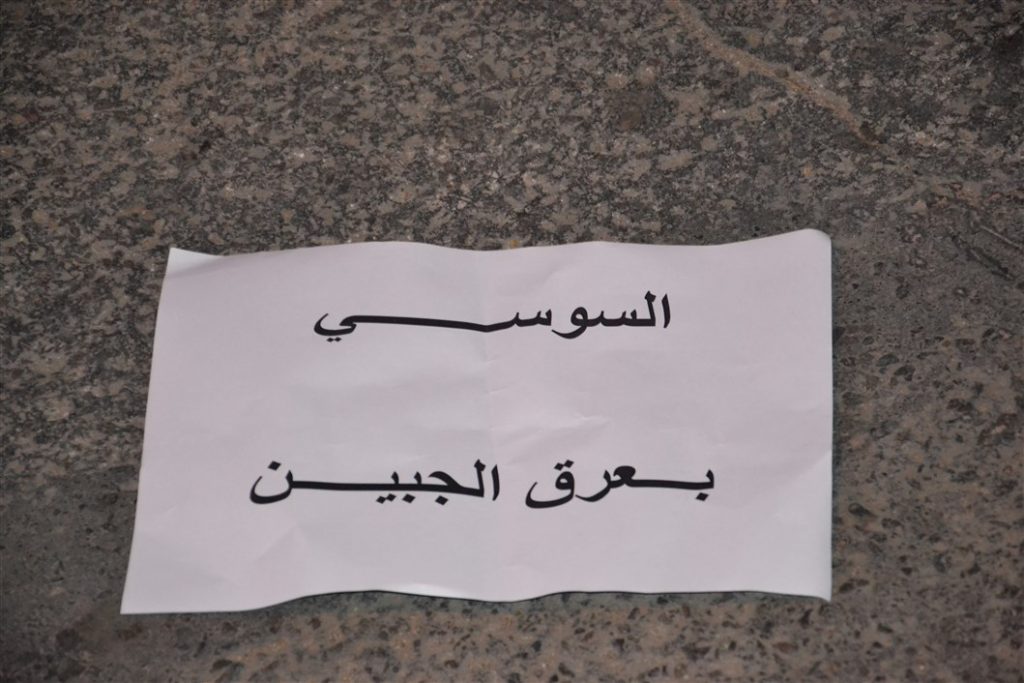 السوسي
بعرق الجبين